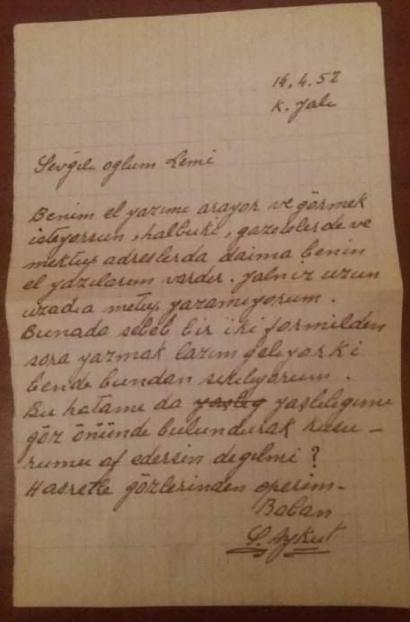 14.4.52
K. Yalı
Sevgili oglum Lemi
Benim el yazımı arayor ve görmek
isteyorsun, halbuki, gazetelerde ve
mektup adreslerda daima benim
el yazılarım vardır. Yalnız uzun
uzadıa metup yazamıyorum.
Bunada sebeb bir iki formilden
sora yazmak lazım geliyorki
bende bundan sıkılıyorum.
Bu hatamı da yaşlılıgımı
göz önünde bulundurak kusu-
rumu af edersin degilmi?
Hasretle gözlerinden operim-
Baban
Aykut